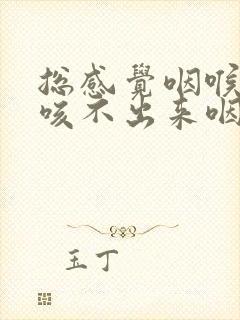 總感覺咽喉
咳不出来咽
玉丁